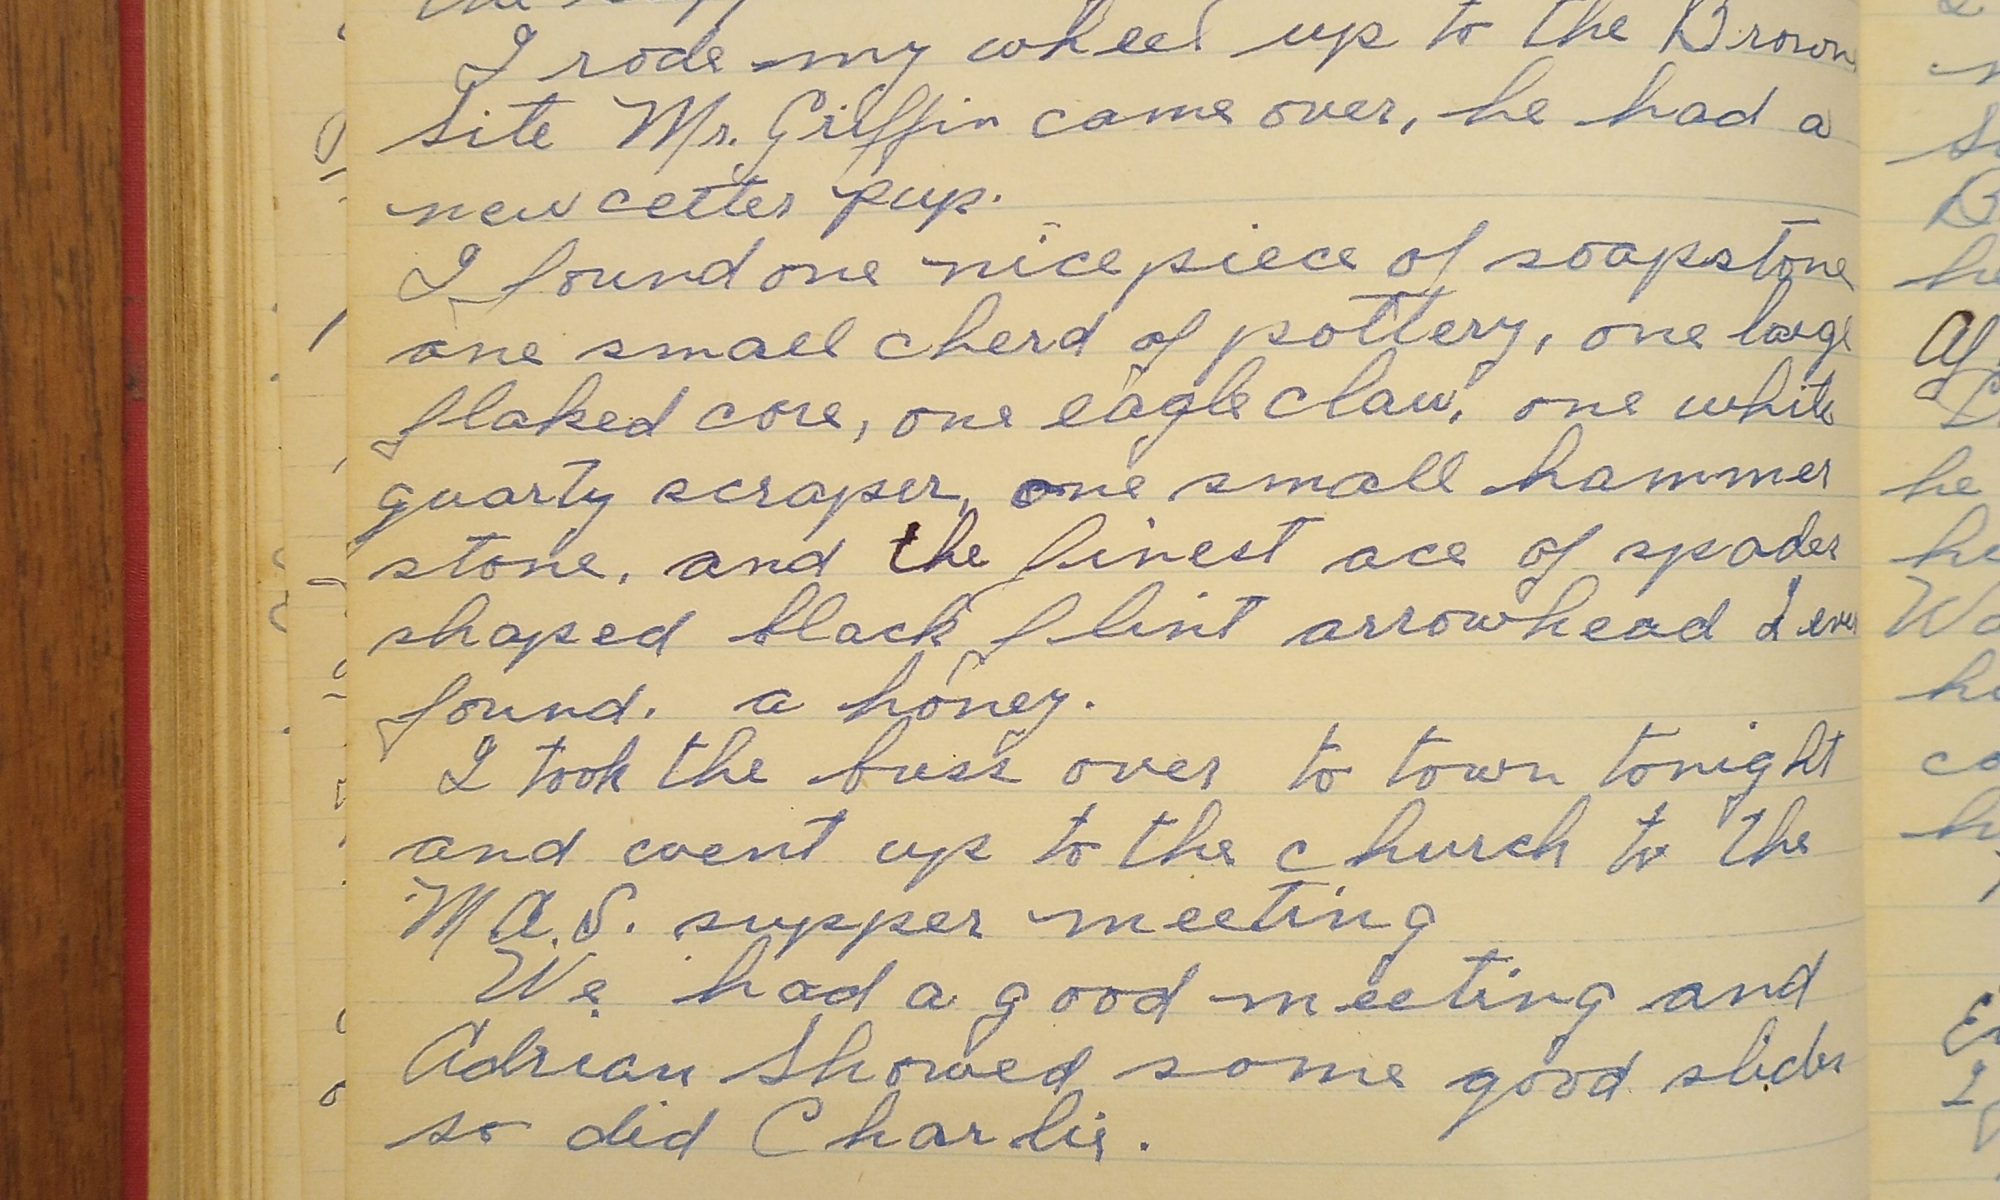 I rode my wheel up to the Brown
Site Mr. Griffin came over, he had a
new cetter pup.
I found one nice piece of soapstone
one small cherd of pottery, one large
flaked core, one eagle claw, one white
quarty scraper, one small hammer
stone, and the finest ace of spades
shaped black flint arrowhead I ever
found. a honey.
I took the buss over to town tonight
and went up to the church to the
M A.S. supper meeting
We had a good meeting and
Adrian Showed some good slides
so did Charlie.